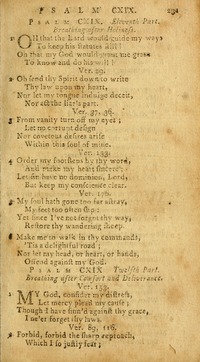 PSALM CXIX. 231
PSALM CXIX. Eleventh Part.
Breathing after Holiness.
OH that the Lord would guide my ways
To keep his statutes still!
Oh that my God would grant me grace
To know and do his will!
Ver. 29.
2 Oh send thy Spirit down to write
Thy law upon my heart,
Nor let my tongue indulge deceit,
Nor act the liar's part.
Ver. 37, 36.
3 From vanity turn off my eyes;
Let no corrupt design
Nor covetous desires arise
Within this soul of mine.
Ver. 133.
4 Order my footsteps by thy word,
And make my heart sincere:
Let sin have no dominion, Lord,
But keep my conscience clear.
Ver. 176.
5 My soul hath gone too far astray,
My feet too often slip:
Yet since I've not forgot thy way,
Restore thy wandering sheep.
6 Make me to walk in thy commands,
'Tis a delightful road;
Nor let my head, or heart, or hands,
Offend against my God.
PSALM CXIX. Twelfth Part.
Breathing after Comfort and Deliverance.
Ver. 153.
1 MY God, consider my distress,
Let mercy plead my cause;
Though I have sinn'd against thy grace,
I ne'er forget thy laws.
Ver. 39, 116.
2 Forbid, forbid the sharp reproach,
Which I so justly fear;